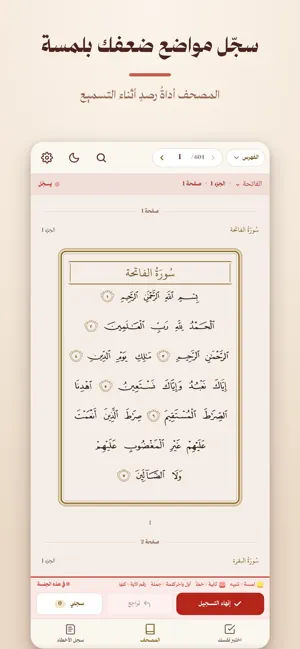 سجّل مواضع ضعفك بلمسة
المصحف أداةُ رصدٍ أثناء التسميع
1 / 604
الفهرس
الفاتحة · الجزء 1 · صفحة 1
يسجّل
صفحة 1
سُورَةُ الفاتحة
الجزء 1
سُورَةُ الفَاتِحَة
بِسْمِ اللَّهِ الرَّحْمَٰنِ الرَّحِيمِ ١
الْحَمْدُ لِلَّهِ رَبِّ الْعَالَمِينَ ٢
الرَّحْمَٰنِ الرَّحِيمِ ٣ مَالِكِ يَوْمِ الدِّينِ ٤
إِيَّاكَ نَعْبُدُ وَإِيَّاكَ نَسْتَعِينُ ٥ اهْدِنَا
الصِّرَاطَ الْمُسْتَقِيمَ ٦ صِرَاطَ الَّذِينَ أَنْعَمْتَ
عَلَيْهِمْ غَيْرِ الْمَغْضُوبِ عَلَيْهِمْ
وَلَا الضَّالِّينَ ٧
1
صفحة 2
سُورَةُ البقرة
الجزء 1
لمسة: تنبيه
ثانية: خطأ
أول/آخر كلمة: جملة
رقم الآية: كلها
0 في هذه الجلسة
إنهاء التسجيل
تراجع
سجلي 0
اختبر نفسك
المصحف
سجل الأخطاء